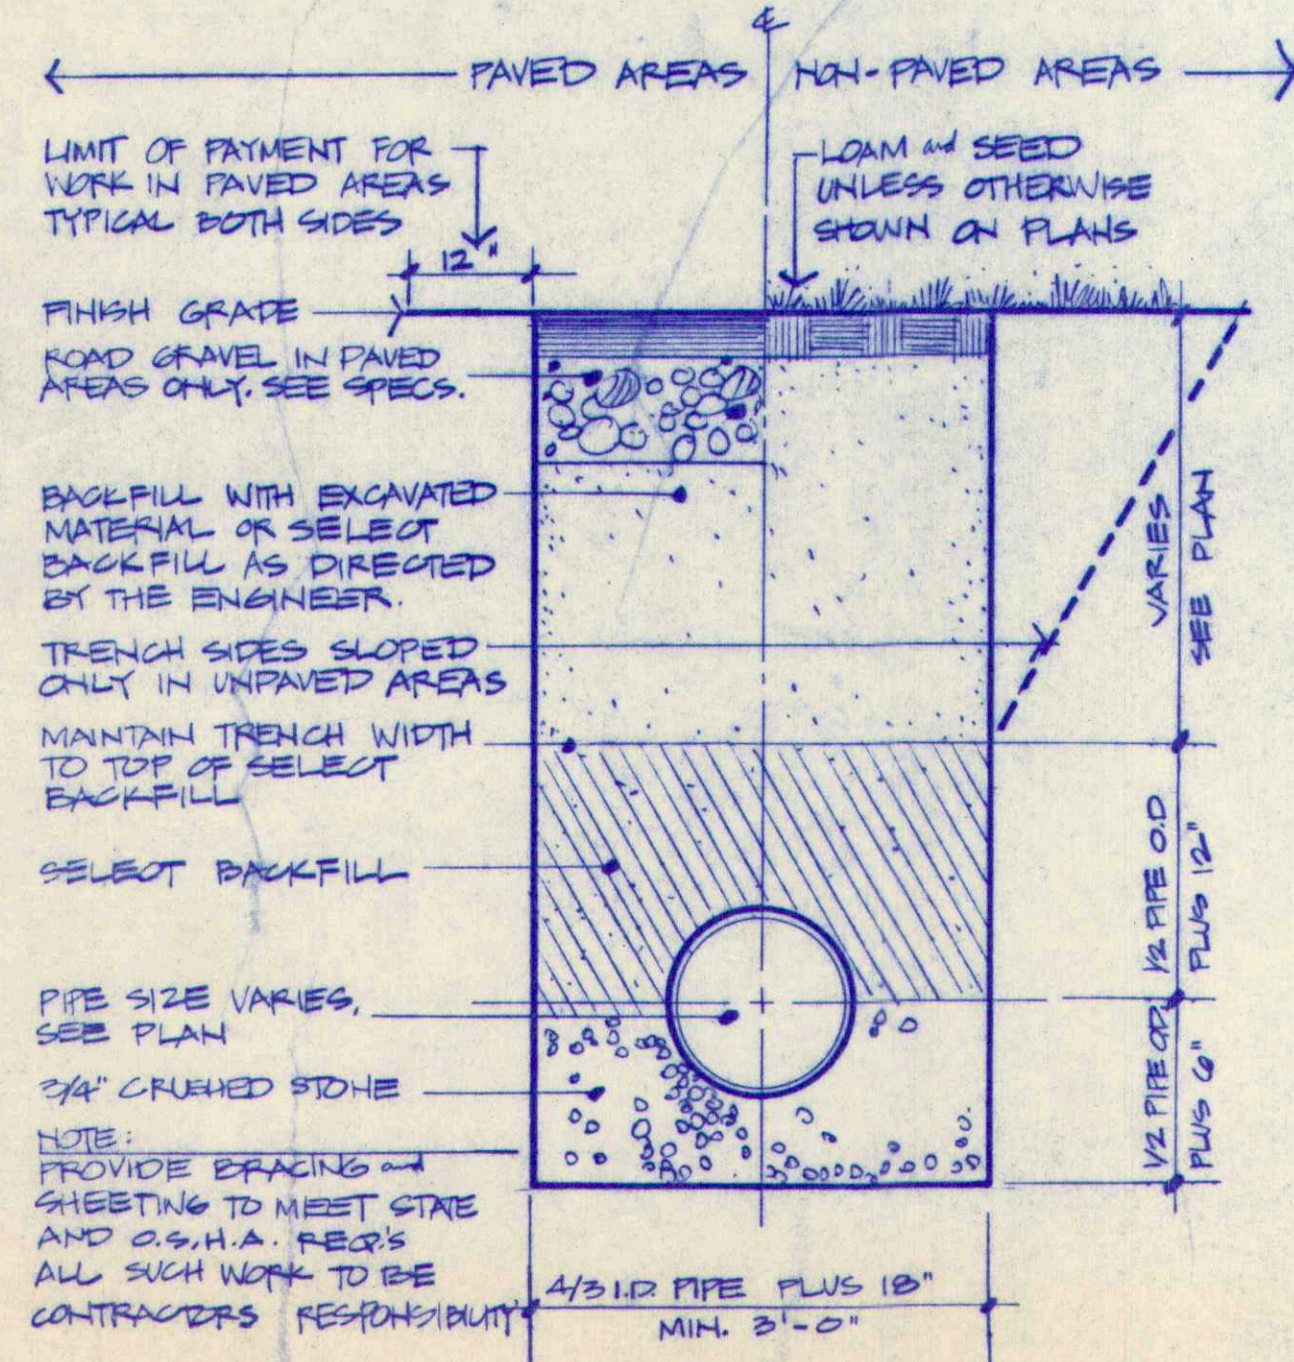 ℄
PAVED AREAS
NON-PAVED AREAS
LIMIT OF PAYMENT FOR
WORK IN PAVED AREAS
TYPICAL BOTH SIDES
LOAM and SEED
UNLESS OTHERWISE
SHOWN ON PLANS
12"
FINISH GRADE
ROAD GRAVEL IN PAVED
AREAS ONLY. SEE SPECS.
BACKFILL WITH EXCAVATED
MATERIAL OR SELECT
BACKFILL AS DIRECTED
BY THE ENGINEER.
TRENCH SIDES SLOPED
ONLY IN UNPAVED AREAS
MAINTAIN TRENCH WIDTH
TO TOP OF SELECT
BACKFILL
SELECT BACKFILL
PIPE SIZE VARIES,
SEE PLAN
3/4" CRUSHED STONE
NOTE:
PROVIDE BRACING and
SHEETING TO MEET STATE
AND O.S.H.A. REQ'S
ALL SUCH WORK TO BE
CONTRACTORS RESPONSIBILITY
VARIES
SEE PLAN
1/2 PIPE O.D
PLUS 12"
1/2 PIPE O.D.
PLUS 6"
4/3 I.D. PIPE PLUS 18"
MIN. 3'-0"